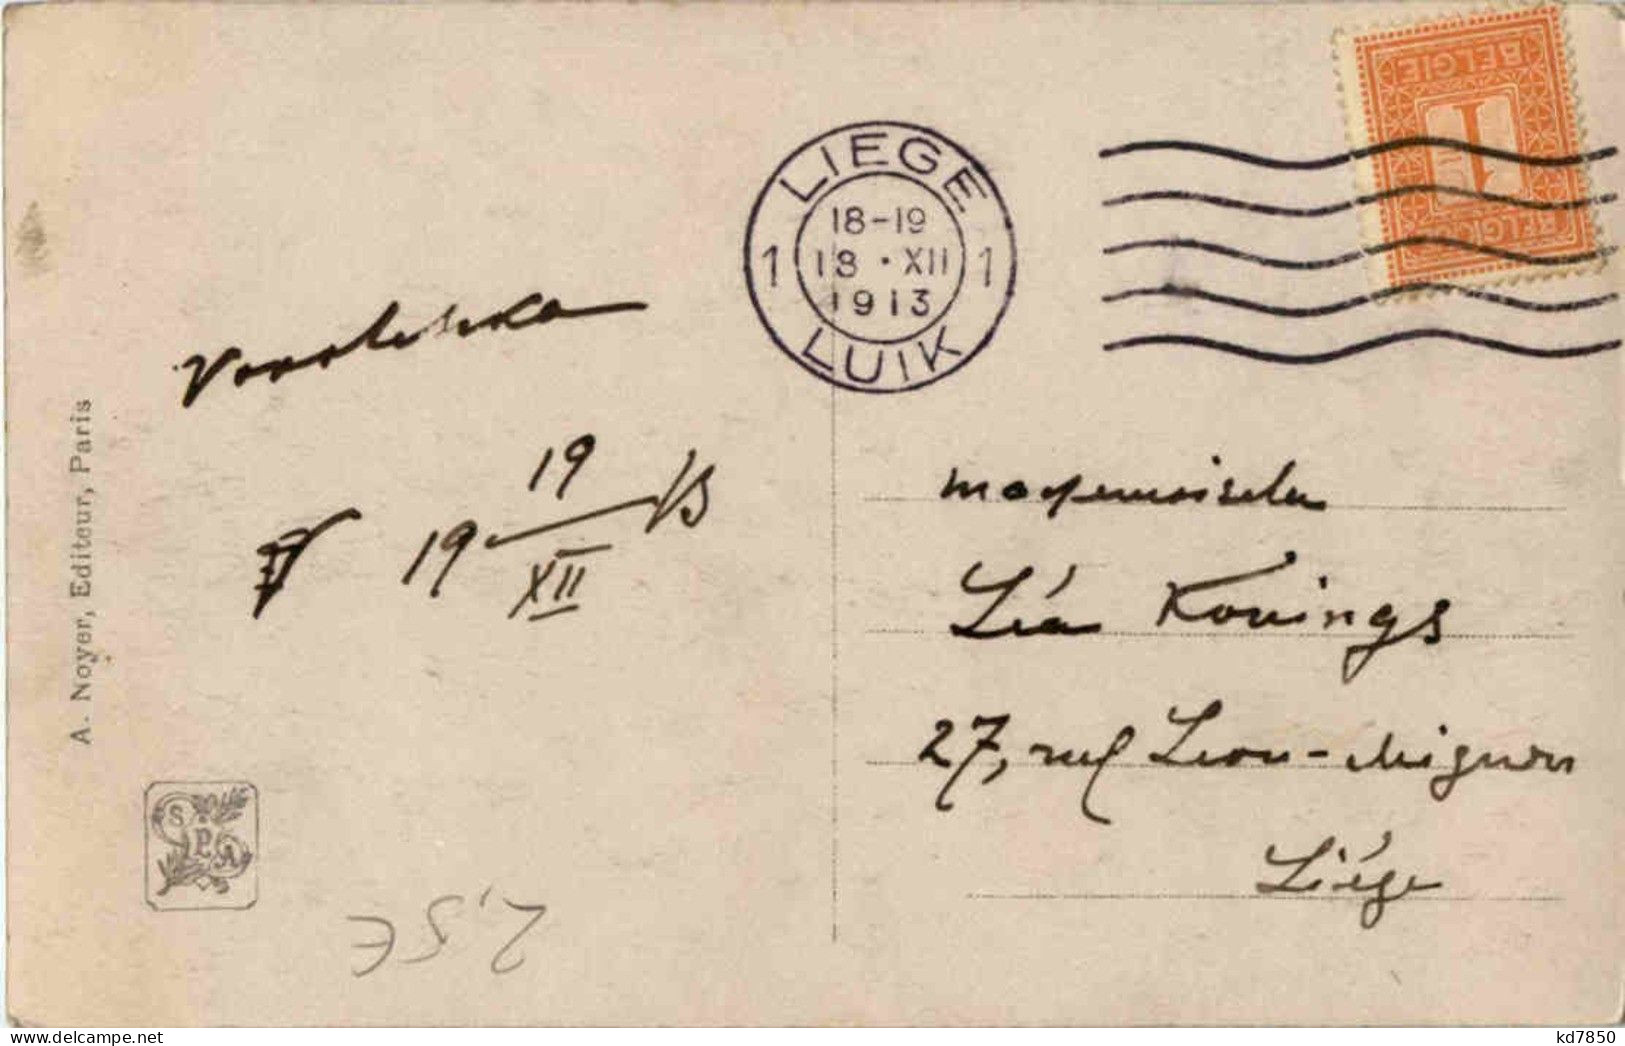 BELGIE
1
BELGIQUE
LIEGE
18-19
1 18 • XII 1
1913
LUIK
19
19 13
XII
Mademoiselle
Léa Konings
27, rue Leon-Mignon
Liége
A. Noyer, Editeur, Paris
S
P
A
2.5€
kd7850